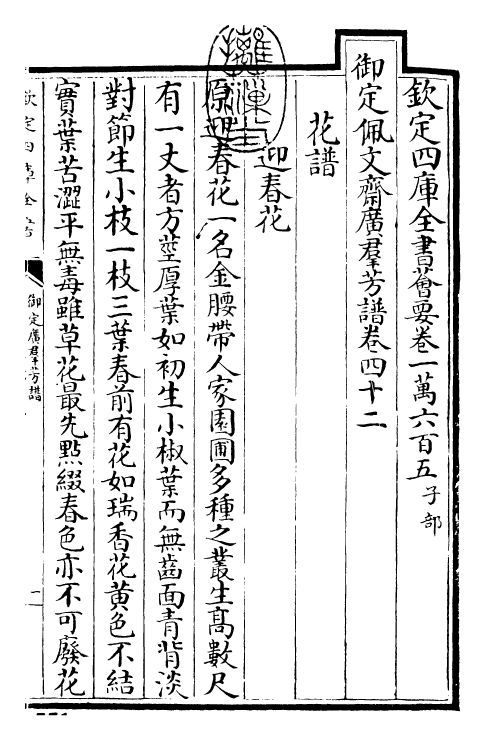 欽定四庫全書薈要卷一萬六百五子部
御定佩文齋廣羣芳譜卷四十二
花譜
迎春花
原迎春花一名金腰帶人家園圃多種之叢生高數尺
有一丈者方莖厚葉如初生小椒葉而無齒面青背淡
對節生小枝一枝三葉春前有花如瑞香花黄色不結
實葉苦澀平無毒雖草花最先點綴春色亦不可廢花
欽定四庫全書
御定廣羣芳譜
一